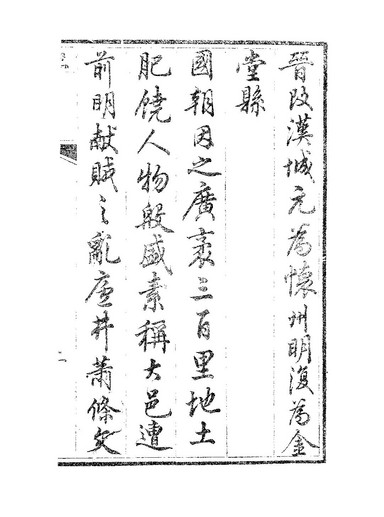 晉改漢城元為懷州明復為金
堂縣
國朝因之廣袤三百里地土
肥饒人物殷盛素稱大邑遭
前明獻賊之亂廬井蕭條文